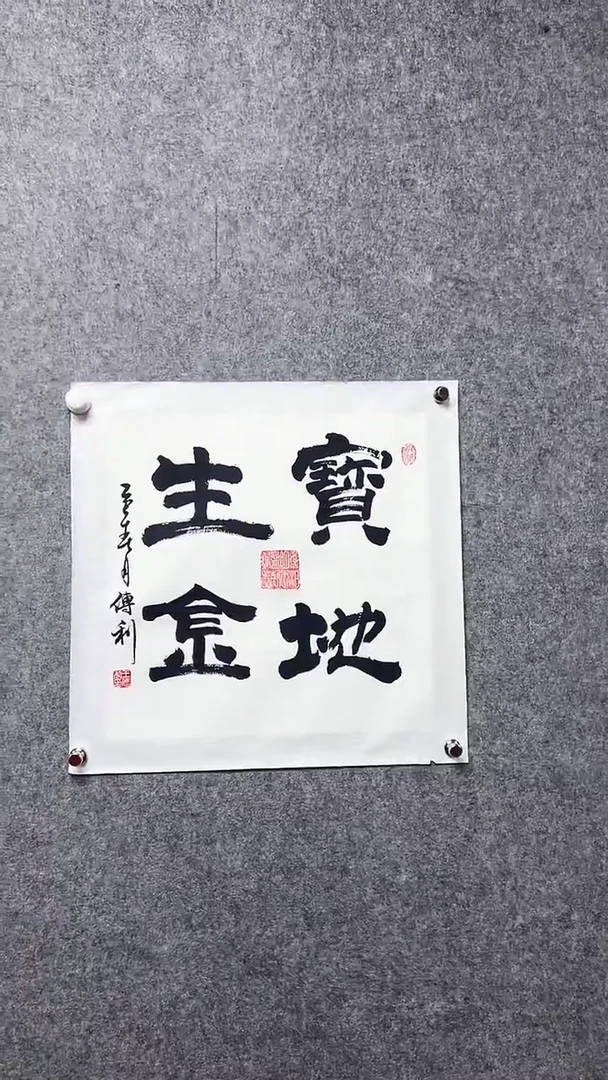 寶地
生金
春月傳利